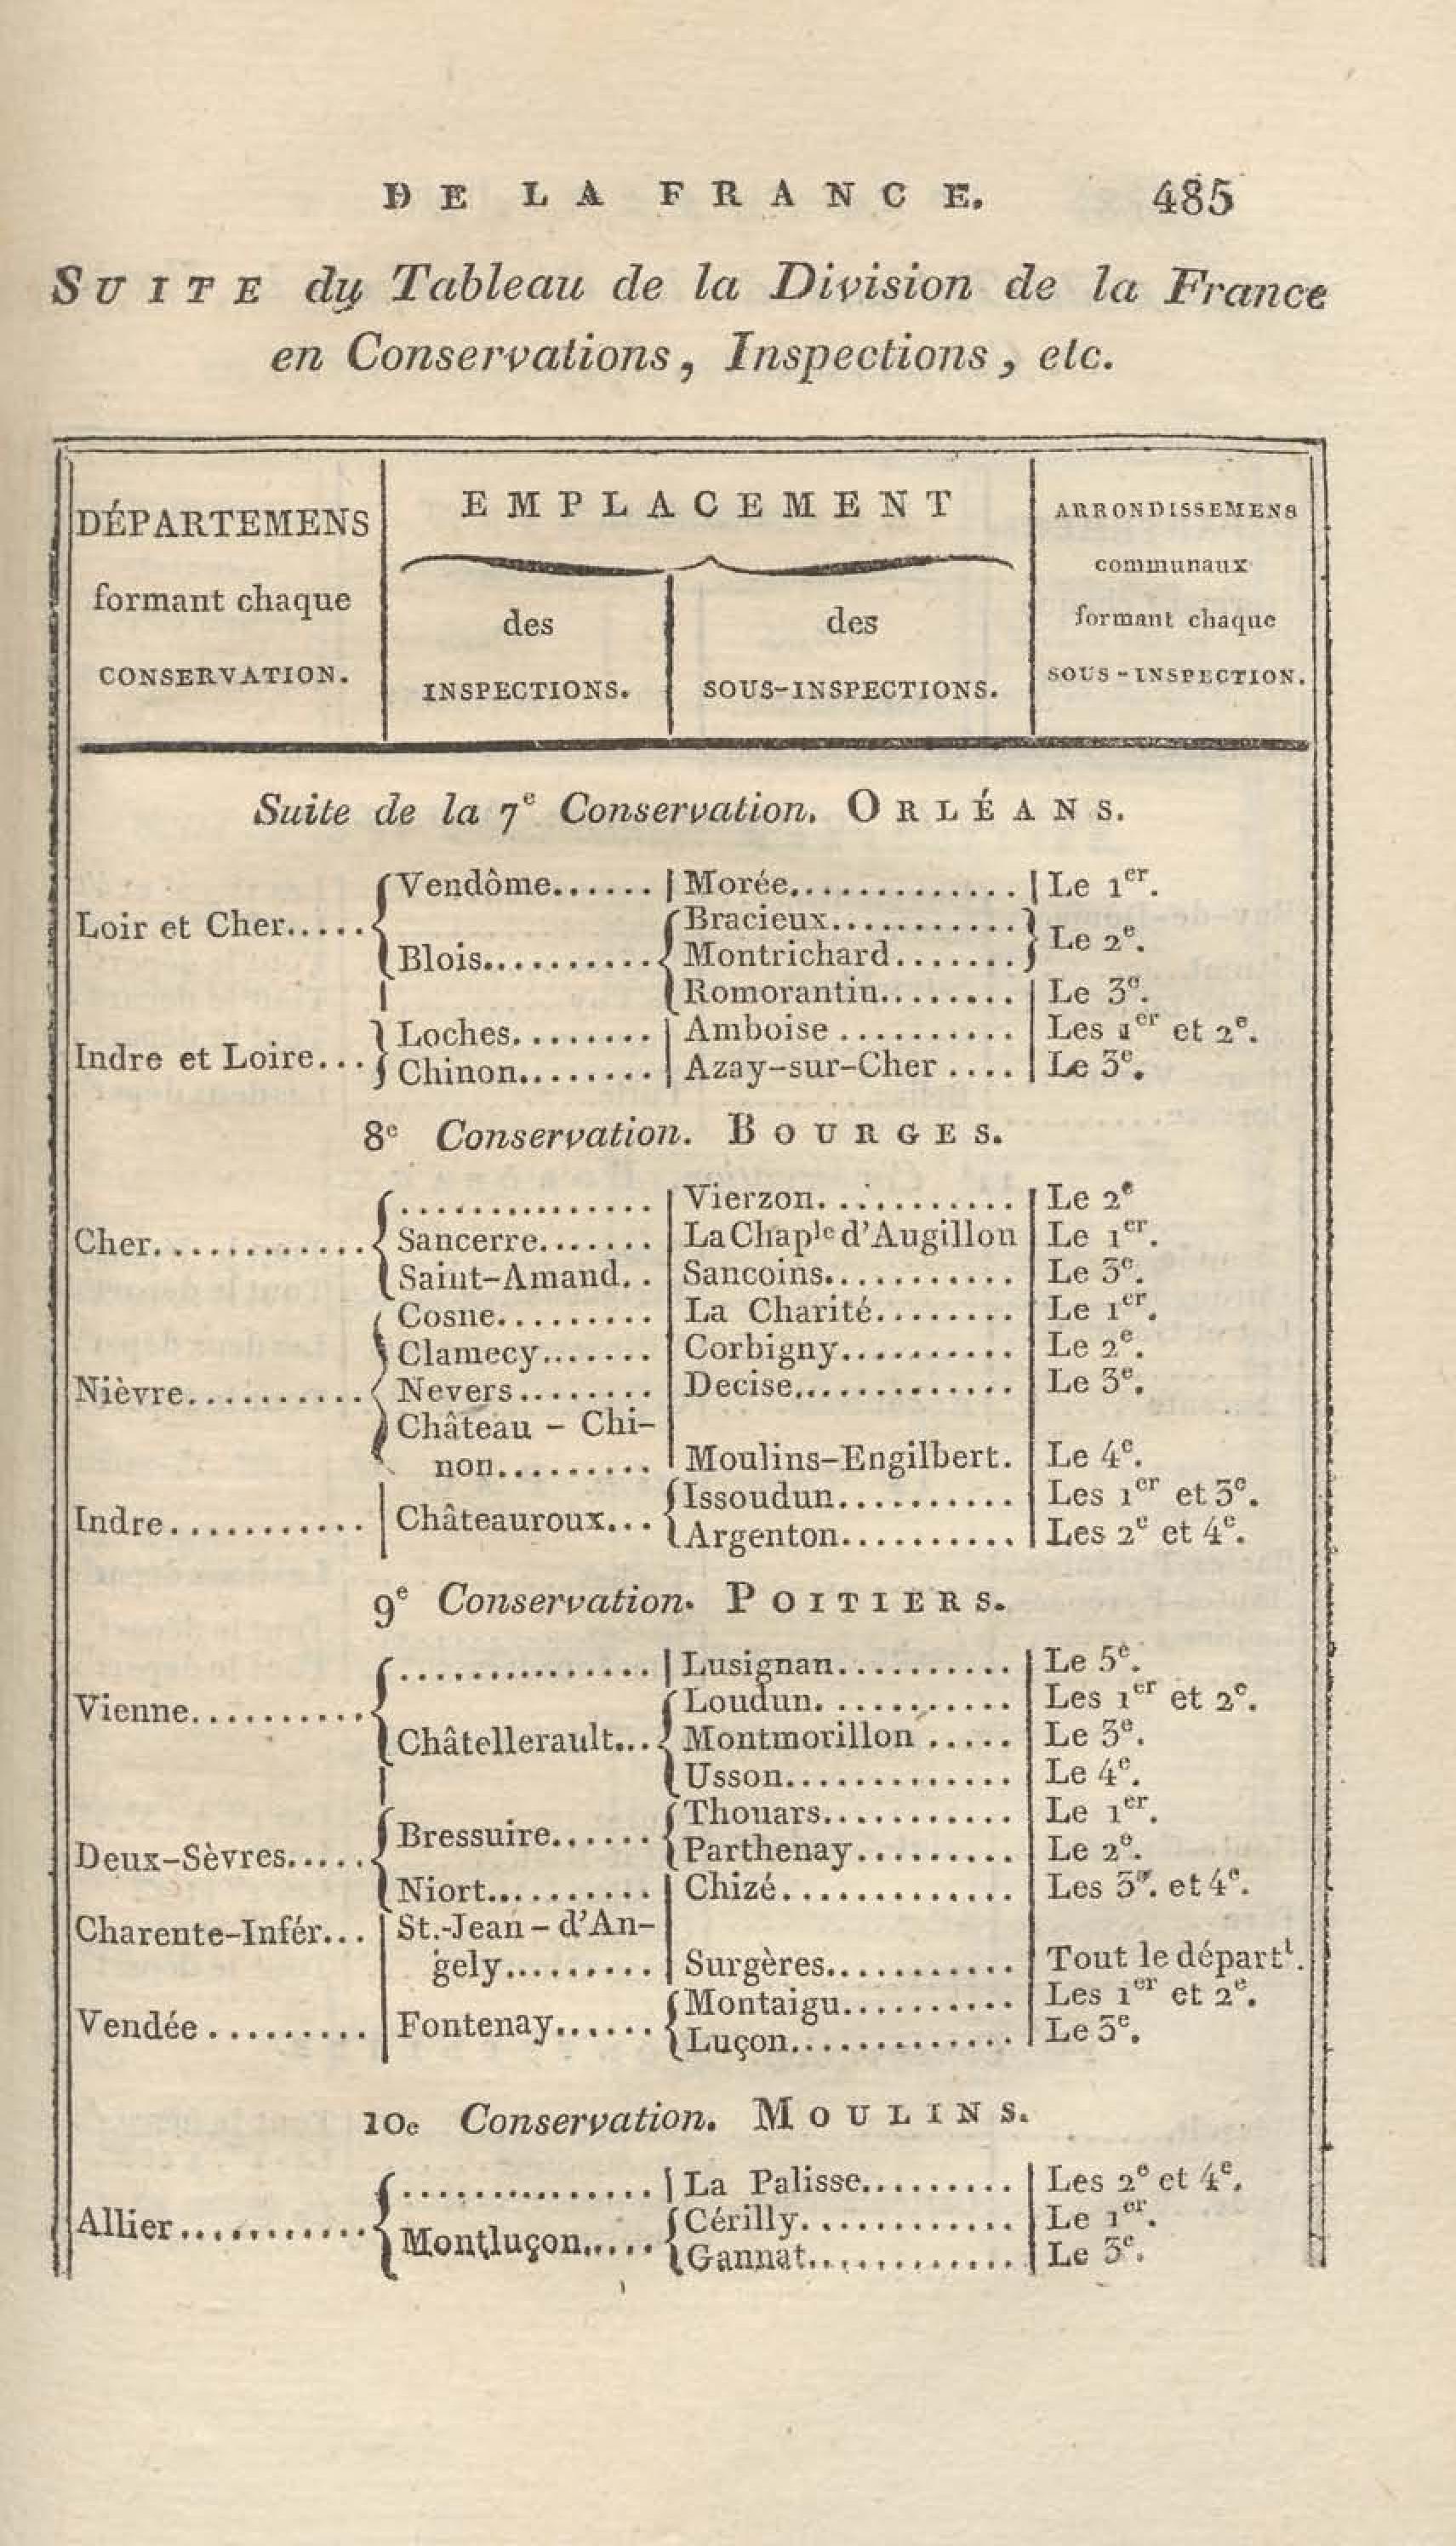 DE LA FRANCE. 485
SUITE du Tableau de la Division de la France
en Conservations, Inspections, etc.
DÉPARTEMENS
formant chaque
CONSERVATION.
EMPLACEMENT
des
INSPECTIONS.
des
SOUS-INSPECTIONS.
ARRONDISSEMENS
communaux
formant chaque
SOUS-INSPECTION.
Suite de la 7e Conservation. ORLÉANS.
Loir et Cher..... Vendôme...... Morée............. Le 1er.
Blois.......... Bracieux........... Le 2e.
Montrichard.......
Romorantin........ Le 3e.
Indre et Loire... Loches........ Amboise .......... Les 1er et 2e.
Chinon........ Azay-sur-Cher .... Le 3e.
8e Conservation. BOURGES.
Cher............ .............. Vierzon........... Le 2e
Sancerre....... La Chaple d'Augillon Le 1er.
Saint-Amand.. Sancoins........... Le 3e.
Nièvre.......... Cosne......... La Charité........ Le 1er.
Clamecy....... Corbigny.......... Le 2e.
Nevers........ Decise............. Le 3e.
Château-Chi-
non......... Moulins-Engilbert. Le 4e.
Indre........... Châteauroux... Issoudun.......... Les 1er et 3e.
Argenton.......... Les 2e et 4e.
9e Conservation. POITIERS.
Vienne.......... .............. Lusignan.......... Le 5e.
Châtellerault... Loudun........... Les 1er et 2e.
Montmorillon ..... Le 3e.
Usson............. Le 4e.
Deux-Sèvres..... Bressuire...... Thouars........... Le 1er.
Parthenay......... Le 2e.
Niort.......... Chizé............. Les 3e. et 4e.
Charente-Infér... St.-Jean-d'An-
gely......... Surgères........... Tout le départt.
Vendée ......... Fontenay...... Montaigu.......... Les 1er et 2e.
Luçon............. Le 3e.
10e Conservation. MOULINS.
Allier........... .............. La Palisse......... Les 2e et 4e.
Montluçon..... Cérilly............ Le 1er.
Gannat............ Le 3e.